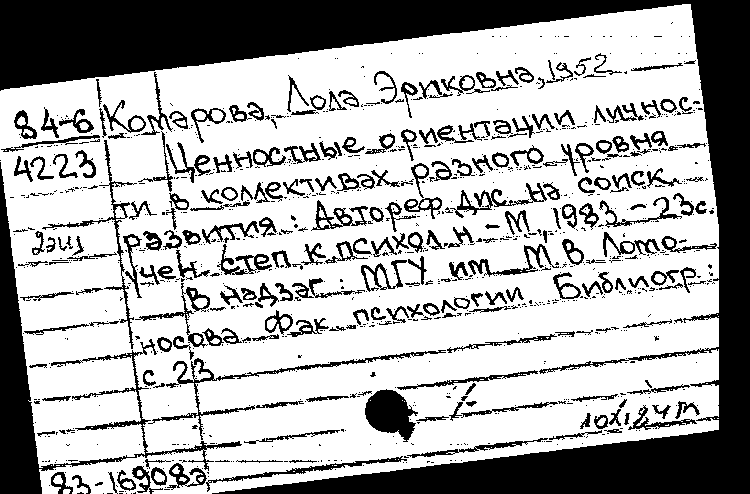 84-6 Комарова, Лола Эриковна, 1952
4223 Ценностные ориентации личнос-
ти в комективах разного уровня
2 экз развития : Автореф дис на соиск.
учен степ к. психол н - М, 1983. - 23с.
В надзаг : МГУ им М. В Ломо-
носова Фак психологии. Библиогр :
с 23
83-16908а